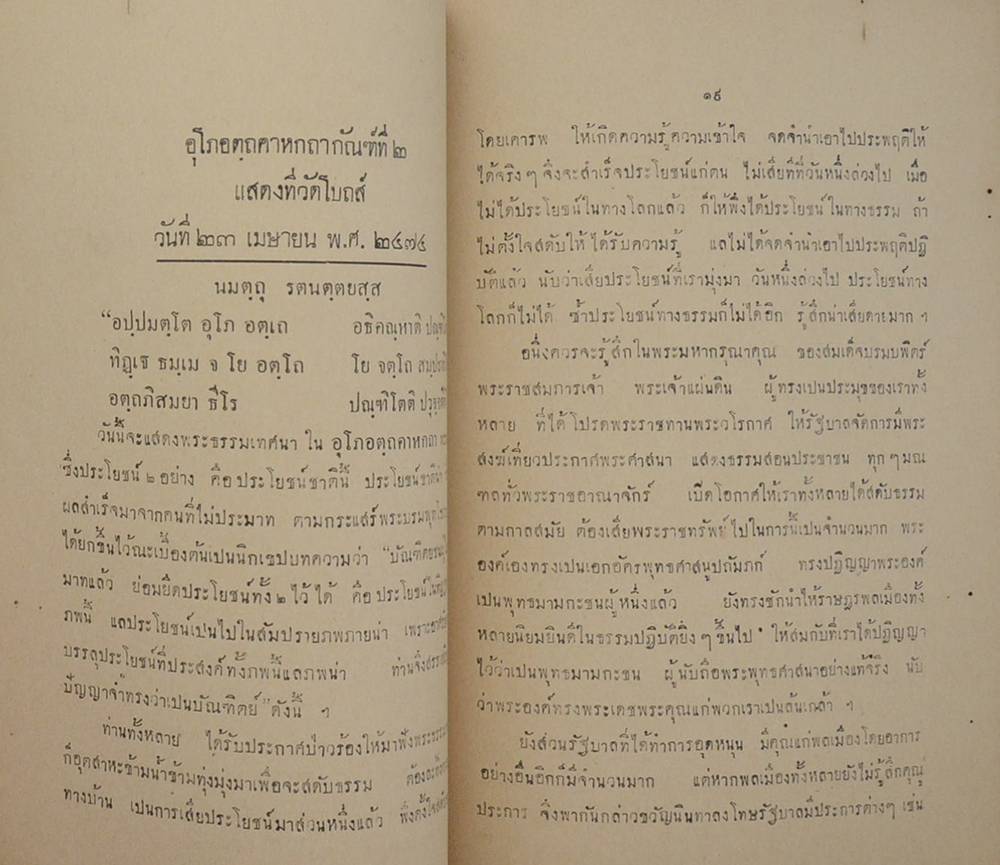 อุโภอตฺถคาหกถากัณฑ์ที่ ๒
แสดงที่วัดโบถส์
วันที่ ๒๓ เมษายน พ.ศ. ๒๔๗๔
นมตฺถุ รตนตฺตยสฺส
“อปฺปมตฺโต อุโภ อตฺเถ อธิคณฺหาติ
ทิฏฺเฐ ธมฺเม จ โย อตฺโถ โย จตฺโถ
อตฺถภิสมยา ธีโร ปณฺฑิโตติ
วันนี้จะแสดงพระธรรมเทศนา ใน อุโภอตฺถคาหกถา
ซึ่งประโยชน์ ๒ อย่าง คือ ประโยชน์ชาตินี้
ผลสำเร็จมาจากคนที่ไม่ประมาท ตามกระแสร์พระบรม
ได้ยกขึ้นไว้ณะเบื้องต้นเปนนิกเขปบทความว่า
มาทแล้ว ย่อมยึดประโยชน์ทั้ง ๒ ไว้ ได้ คือ
ภพนี้ แลประโยชน์เปนไปในสัมปรายภพภายน่า
บรรลุประโยชน์ที่ประสงค์ทั้งภพนี้แลภพน่า
ปัญญาจำทรงว่าเปนบัณฑิตย์” ดังนี้ ฯ
ท่านทั้งหลาย ได้รับประกาศบ่าวร้องให้มาฟัง
ก็อุตส่าหะข้ามน้ำข้ามทุ่งมุ่งมาเพื่อจะสดับธรรม
ทางบ้าน เปนการเสียประโยชน์มาส่วนหนึ่งแล้ว
๑๙
โดยเคารพ ให้เกิดความรู้ความเข้าใจ จดจำนำเอาไปประพฤติให้
ได้จริง ๆ จึงจะสำเร็จประโยชน์แก่ตน ไม่เสียทีที่วันหนึ่งล่วงไป เมื่อ
ไม่ได้ประโยชน์ในทางโลกแล้ว ก็ให้พึงได้ประโยชน์ในทางธรรม ถ้า
ไม่ตั้งใจสดับให้ ได้รับความรู้ แลไม่ได้จดจำนำเอาไปประพฤติปฏิ
บัติแล้ว นับว่าเสียประโยชน์ที่เรามุ่งมา วันหนึ่งล่วงไป ประโยชน์ทาง
โลกก็ไม่ได้ ซ้ำประโยชน์ทางธรรมก็ไม่ได้อีก รู้สึกน่าเสียดายมาก ฯ
อนึ่งควรจะรู้สึกในพระมหากรุณาคุณ ของสมเด็จบรมบพิตร์
พระราชสมภารเจ้า พระเจ้าแผ่นดิน ผู้ทรงเปนประมุขของเราทั้ง
หลาย ที่ได้ โปรดพระราชทานพระวโรกาศ ให้รัฐบาลจัดการมีพระ
สงฆ์เที่ยวประกาศพระศาสนา แสดงธรรมสอนประชาชน ทุก ๆ มณ
ฑลทั่วพระราชอาณาจักร์ เปิดโอกาศให้เราทั้งหลายได้สดับธรรม
ตามกาลสมัย ต้องเสียพระราชทรัพย์ ไปในการนี้เปนจำนวนมาก พระ
องค์เองทรงเปนเอกอัครพุทธศาสนูปถัมภก์ ทรงปฏิญญาพระองค์
เปนพุทธมามกะชนผู้หนึ่งแล้ว ยังทรงชักนำให้ราษฎรพลเมืองทั้ง
หลายนิยมยินดีในธรรมปฏิบัติยิ่ง ๆ ขึ้นไป ให้สมกับที่เราได้ปฏิญญา
ไว้ว่าเปนพุทธมามกะชน ผู้นับถือพระพุทธศาสนาอย่างแท้จริง นับ
ว่าพระองค์ทรงพระเดชพระคุณแก่พวกเราเปนล้นเกล้า ฯ
ยังส่วนรัฐบาลที่ได้ทำการอุดหนุน มีคุณแก่พลเมืองโดยอาการ
อย่างอื่นอีกก็มีจำนวนมาก แต่หากพลเมืองทั้งหลายยังไม่รู้สึกคุณู
ประการ จึงพากันกล่าวขวัญนินทาลงโทษรัฐบาลมีประการต่างๆ เช่น